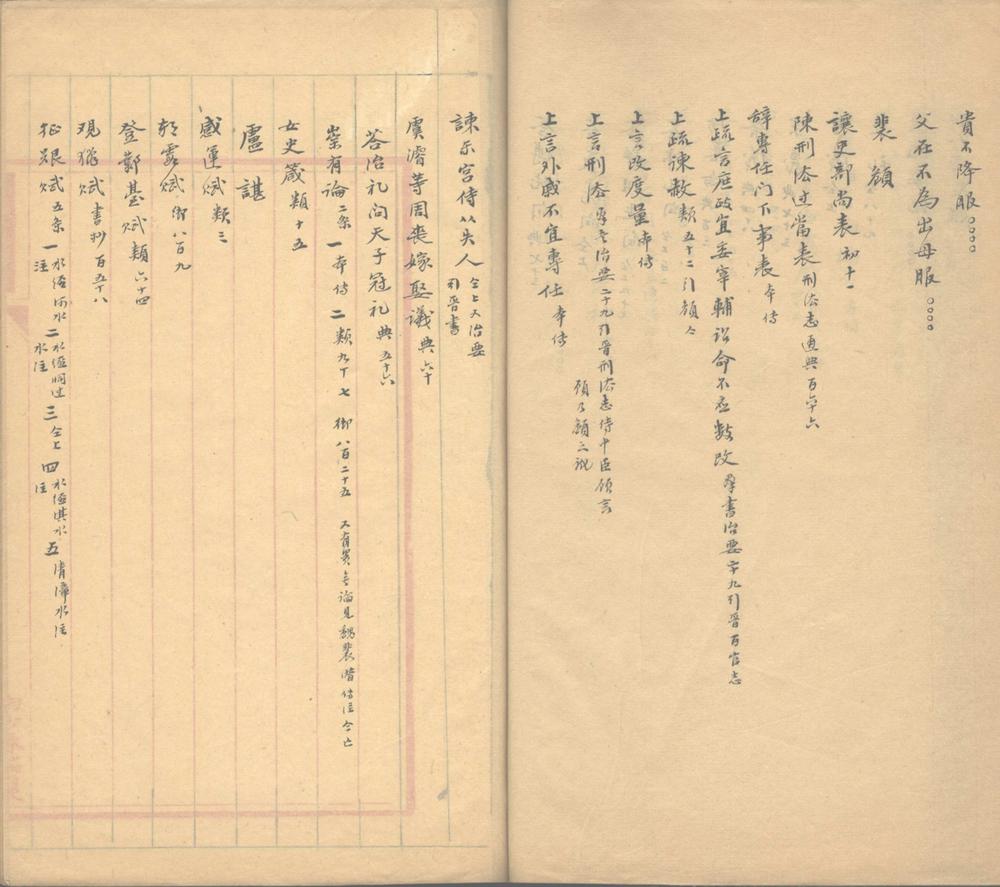 貴不降服。。。。
父在不為出母服。。。。
裴頠
讓吏部尚表 初十一
陳刑法过當表 刑法志 通典百六十六
辞專任门下事表 本传
上疏言庶政宜委宰輔詔命不应數改 羣書治要二十九引晋百官志
上疏谏赦 類五十二引頠人
上言改度量 本传
上言刑法 羣书治要二十九引晋刑法志侍中臣頠言
頠乃頠之訛
上言外戚不宜專任 本传
諫东宫侍从失人 仝上又治要
引晋書
虞濬等周喪嫁娶議 典六十
荅治礼问天子冠礼 典五十六
崇有論 二条 一本传 二類九十七 御八百二十五 又有貴无論見魏裴潜传注今亡
女史箴 類十五
盧諶
感運賦 類三
朝霧賦 御八百九
登鄴臺賦 類六十四
观獵賦 書抄百五十八
征艱賦 五条 一 水经河水
注 二 水经洞过
水注 三 仝上 四 水经淇水
注 五 清漳水注